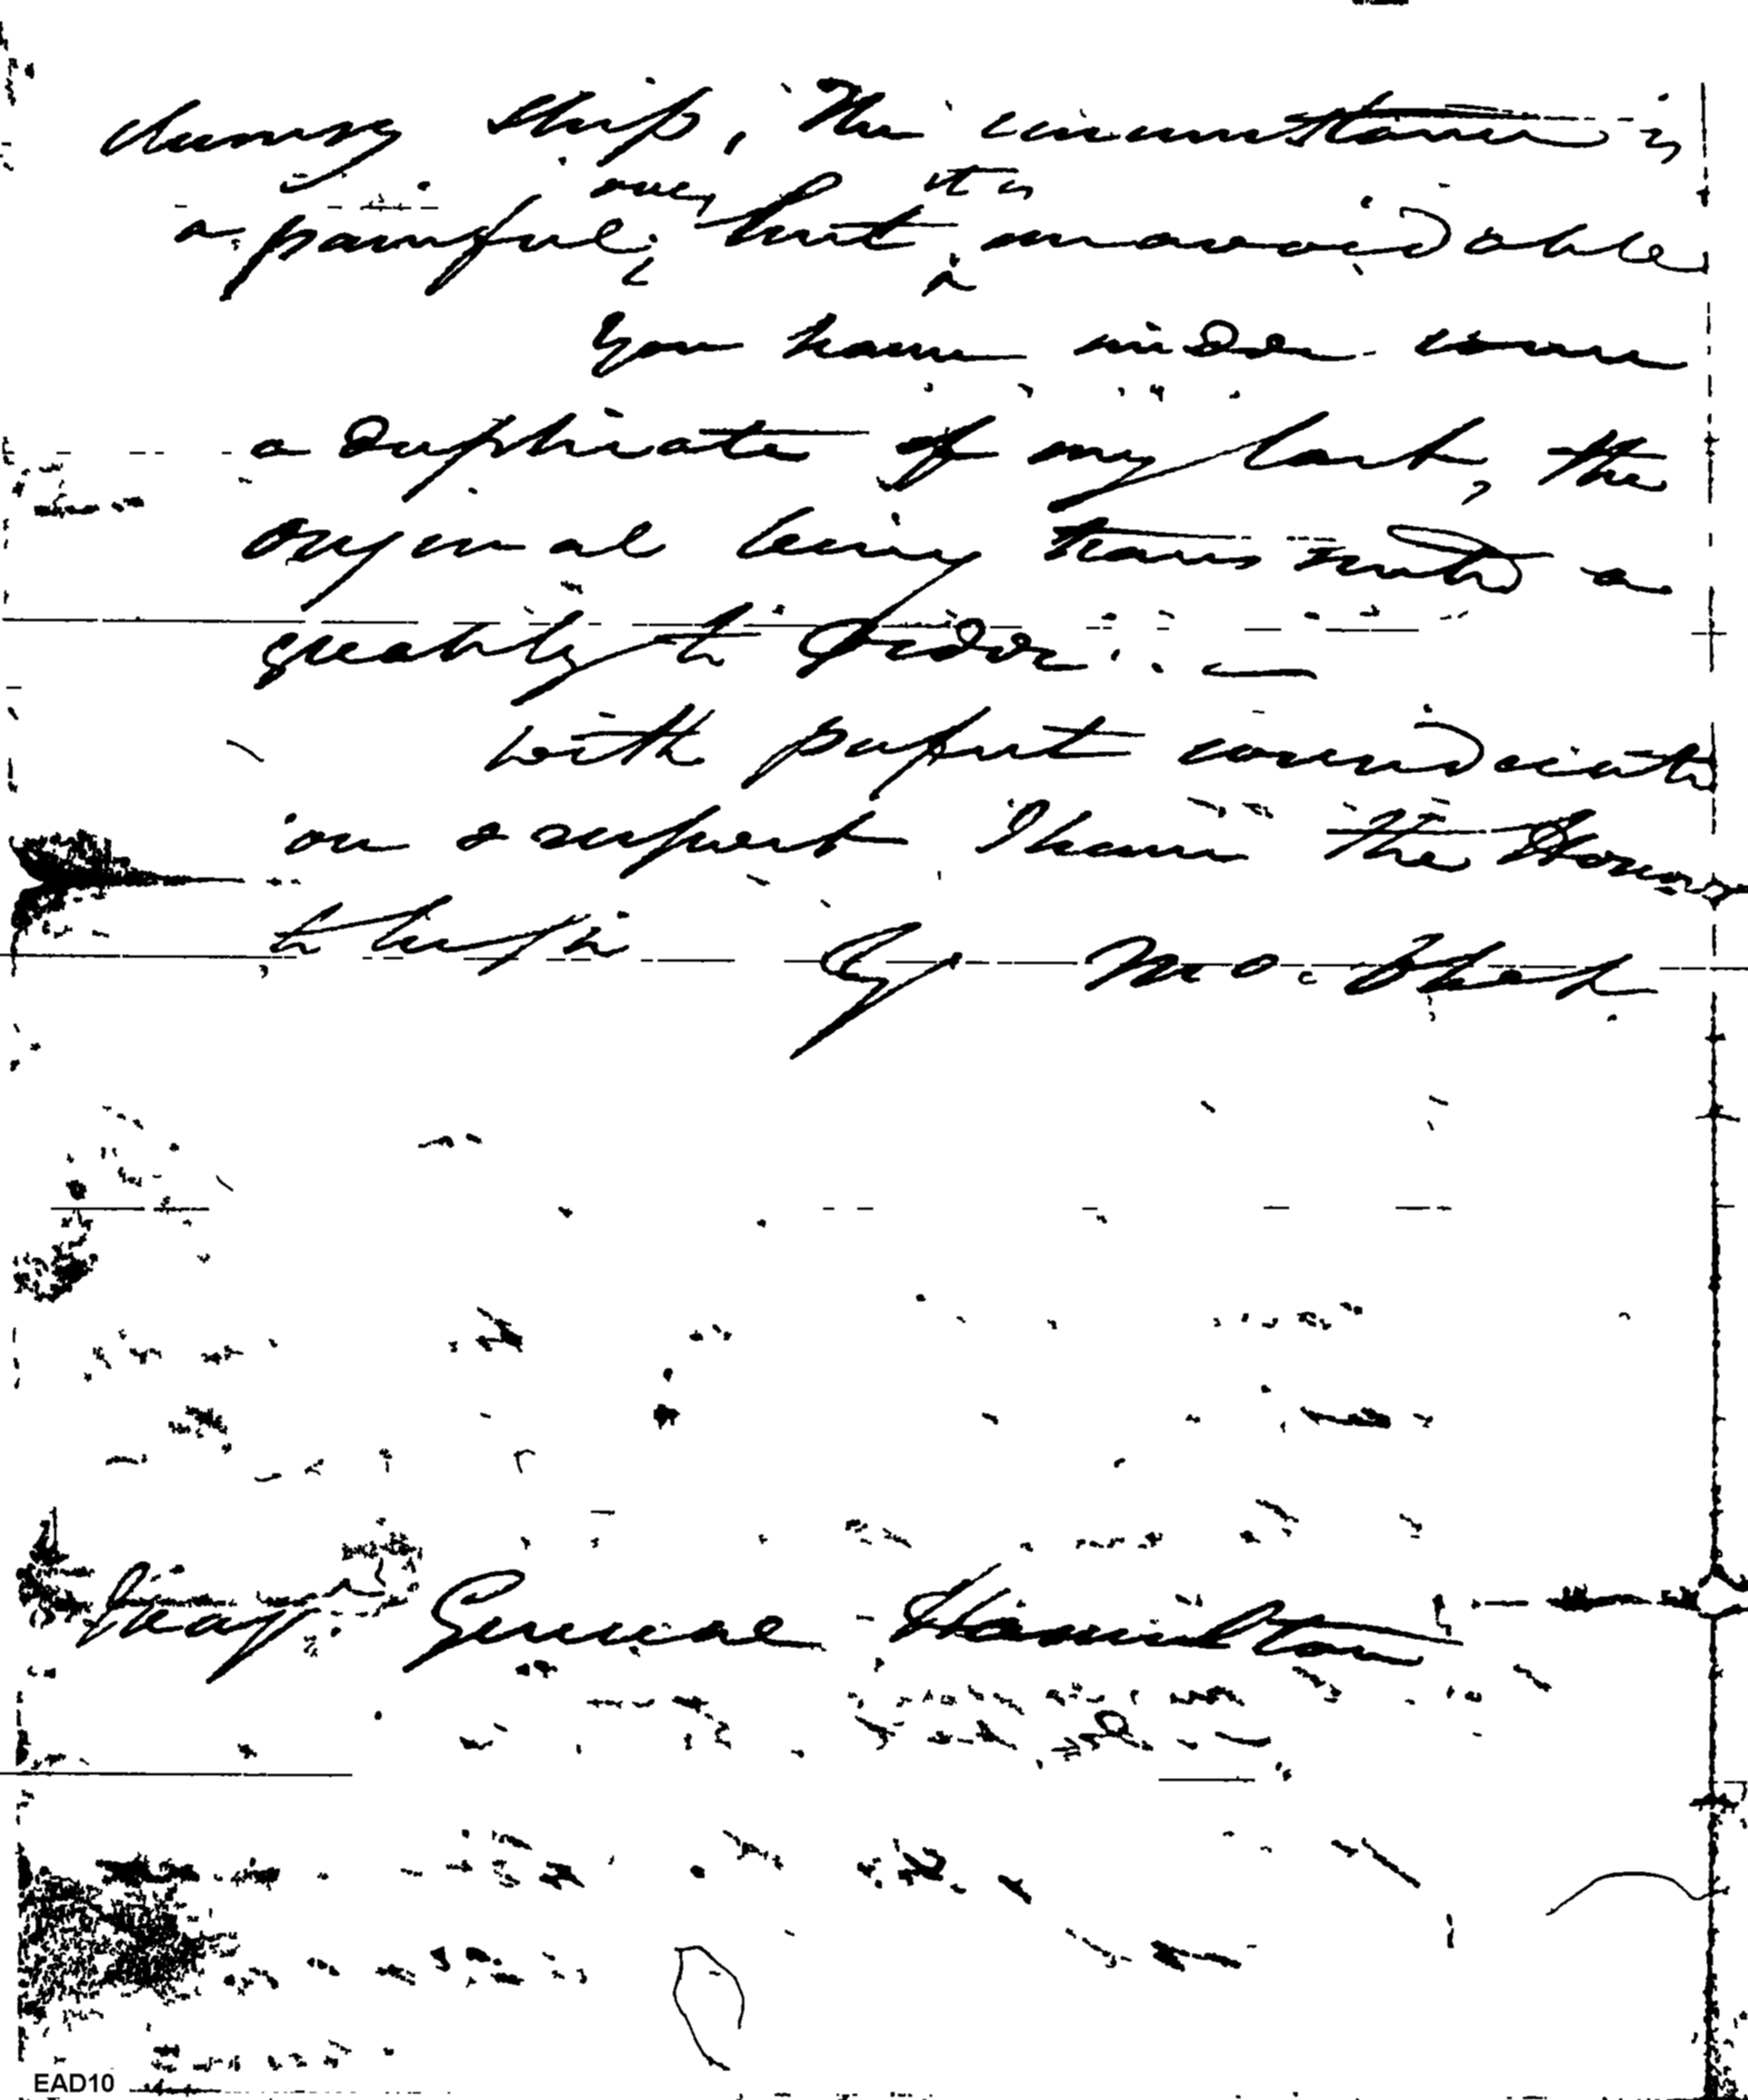 clumsy ship, The circumstance is
a painful one, but it is unavoidable
You have under cover
a duplicate of my last, the
original being transmitted a
greably to order. —
with perfect considerati
on & respect I have the Honor
to be Sir Yr Mo. Obed.
Maj. General Hamilton
EAD10